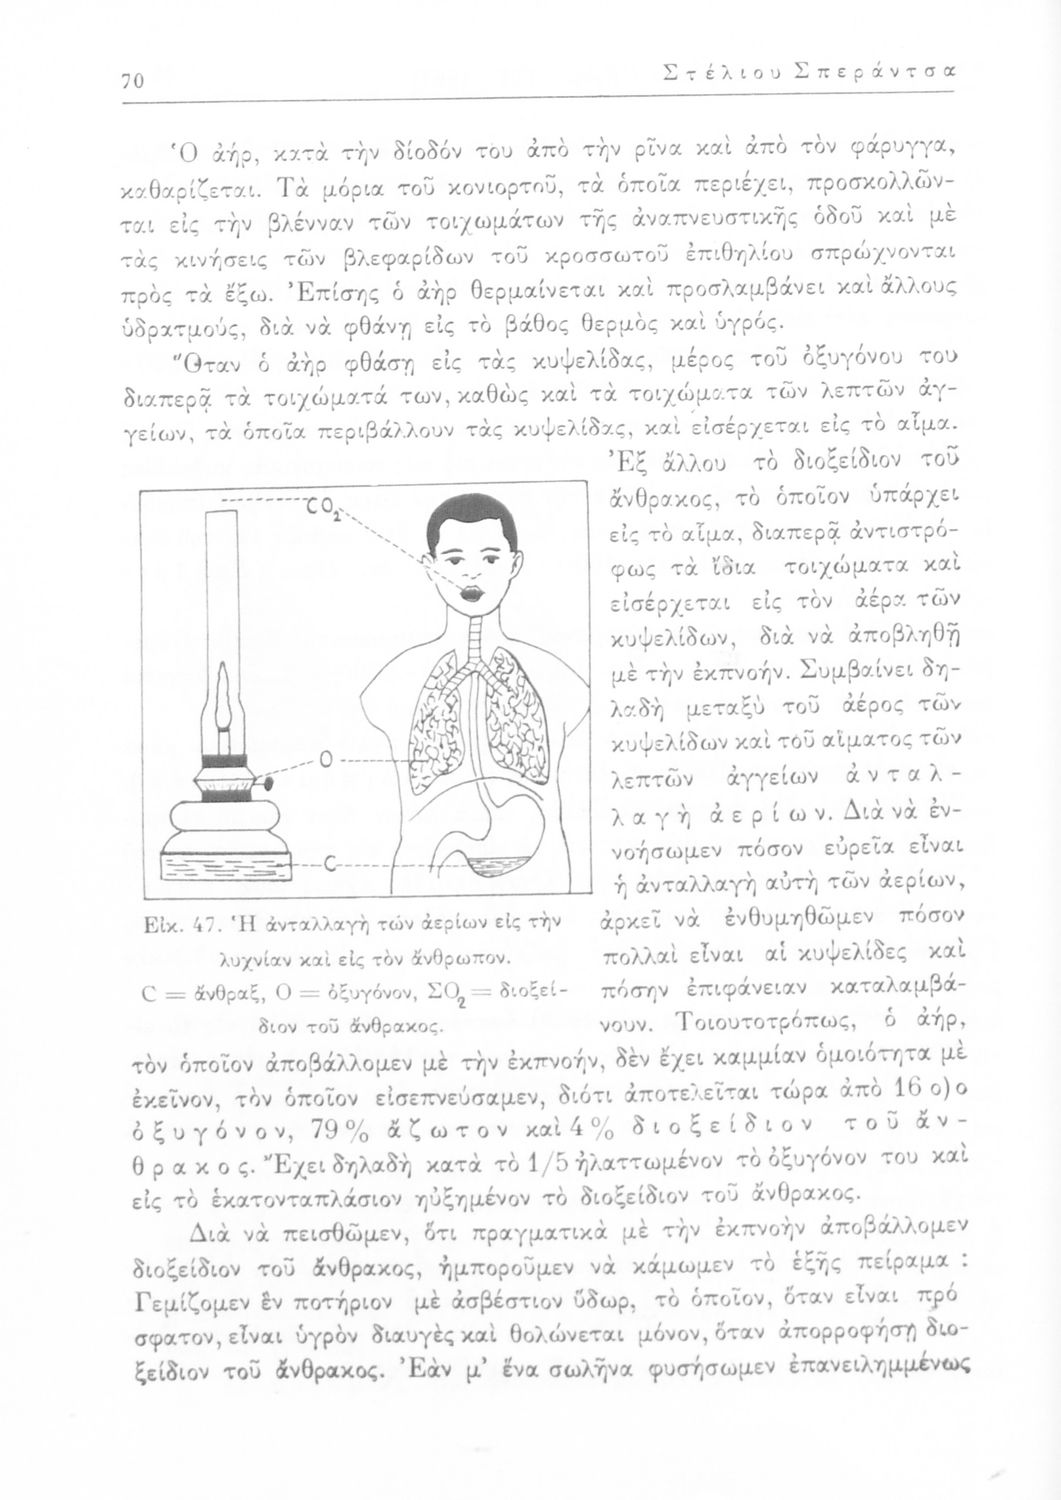 70
Στέλιου Σπεράντσα
Ὁ ἀήρ, κατὰ τὴν δίοδόν του ἀπὸ τὴν ρῖνα καὶ ἀπὸ τὸν φάρυγγα,
καθαρίζεται. Τὰ μόρια τοῦ κονιορτοῦ, τὰ ὁποῖα περιέχει, προσκολλῶν-
ται εἰς τὴν βλένναν τῶν τοιχωμάτων τῆς ἀναπνευστικῆς ὁδοῦ καὶ μὲ
τὰς κινήσεις τῶν βλεφαρίδων τοῦ κροσσωτοῦ ἐπιθηλίου σπρώχνονται
πρὸς τὰ ἔξω. Ἐπίσης ὁ ἀὴρ θερμαίνεται καὶ προσλαμβάνει καὶ ἄλλους
ὑδρατμούς, διὰ νὰ φθάνῃ εἰς τὸ βάθος θερμὸς καὶ ὑγρός.
Ὅταν ὁ ἀὴρ φθάσῃ εἰς τὰς κυψελίδας, μέρος τοῦ ὀξυγόνου του
διαπερᾷ τὰ τοιχώματά των, καθὼς καὶ τὰ τοιχώματα τῶν λεπτῶν ἀγ-
γείων, τὰ ὁποῖα περιβάλλουν τὰς κυψελίδας, καὶ εἰσέρχεται εἰς τὸ αἷμα.
Ἐξ ἄλλου τὸ διοξείδιον τοῦ
ἄνθρακος, τὸ ὁποῖον ὑπάρχει
εἰς τὸ αἷμα, διαπερᾷ ἀντιστρό-
φως τὰ ἴδια τοιχώματα καὶ
εἰσέρχεται εἰς τὸν ἀέρα τῶν
κυψελίδων, διὰ νὰ ἀποβληθῇ
μὲ τὴν ἐκπνοήν. Συμβαίνει δη-
λαδὴ μεταξὺ τοῦ ἀέρος τῶν
κυψελίδων καὶ τοῦ αἵματος τῶν
λεπτῶν ἀγγείων ἀνταλ-
λαγὴ ἀερίων. Διὰ νὰ ἐν-
νοήσωμεν πόσον εὐρεῖα εἶναι
ἡ ἀνταλλαγὴ αὐτὴ τῶν ἀερίων,
ἀρκεῖ νὰ ἐνθυμηθῶμεν πόσον
πολλαὶ εἶναι αἱ κυψελίδες καὶ
πόσην ἐπιφάνειαν καταλαμβά-
νουν. Τοιουτοτρόπως, ὁ ἀήρ,
CO2
O
C
Εἰκ. 47. Ἡ ἀνταλλαγὴ τῶν ἀερίων εἰς τὴν
λυχνίαν καὶ εἰς τὸν ἄνθρωπον.
C = ἄνθραξ, O = ὀξυγόνον, ΣΟ2 = διοξεί-
διον τοῦ ἄνθρακος.
τὸν ὁποῖον ἀποβάλλομεν μὲ τὴν ἐκπνοήν, δὲν ἔχει καμμίαν ὁμοιότητα μὲ
ἐκεῖνον, τὸν ὁποῖον εἰσεπνεύσαμεν, διότι ἀποτελεῖται τώρα ἀπὸ 16 ο)ο
ὀξυγόνον, 79% ἄζωτον καὶ 4% διοξείδιον τοῦ ἄν-
θρακος. Ἔχει δηλαδὴ κατὰ τὸ 1/5 ἠλαττωμένον τὸ ὀξυγόνον του καὶ
εἰς τὸ ἑκατονταπλάσιον ηὐξημένον τὸ διοξείδιον τοῦ ἄνθρακος.
Διὰ νὰ πεισθῶμεν, ὅτι πραγματικὰ μὲ τὴν ἐκπνοὴν ἀποβάλλομεν
διοξείδιον τοῦ ἄνθρακος, ἠμποροῦμεν νὰ κάμωμεν τὸ ἑξῆς πείραμα :
Γεμίζομεν ἓν ποτήριον μὲ ἀσβέστιον ὕδωρ, τὸ ὁποῖον, ὅταν εἶναι πρό
σφατον, εἶναι ὑγρὸν διαυγὲς καὶ θολώνεται μόνον, ὅταν ἀπορροφήσῃ διο-
ξείδιον τοῦ ἄνθρακος. Ἐὰν μ' ἕνα σωλῆνα φυσήσωμεν ἐπανειλημμένως